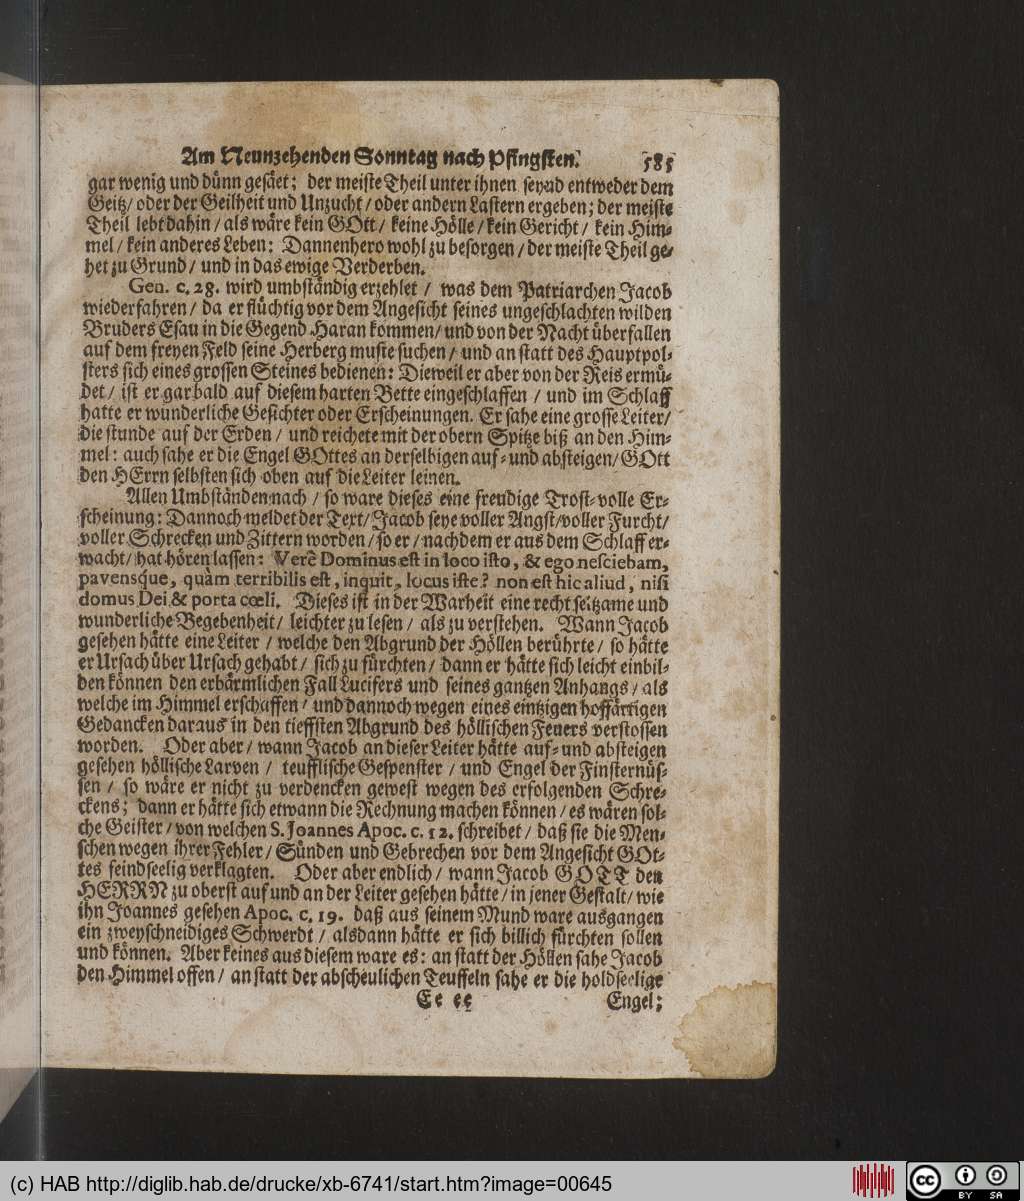 Am Neunzehenden Sonntag nach Pfingsten. 585
gar wenig und dünn gesäet; der meiste Theil unter ihnen seynd entweder dem
Geitz/ oder der Geilheit und Unzucht/ oder andern Lastern ergeben; der meiste
Theil lebt dahin/ als wäre kein GOtt/ keine Hölle/ kein Gericht/ kein Him-
mel/ kein anderes Leben: Dannenhero wohl zu besorgen/ der meiste Theil ge-
het zu Grund/ und in das ewige Verderben.
Gen. c. 28. wird umbständig erzehlet/ was dem Patriarchen Jacob
wiederfahren/ da er flüchtig vor dem Angesicht seines ungeschlachten wilden
Bruders Esau in die Gegend Haran kommen/ und von der Nacht überfallen
auf dem freyen Feld seine Herberg muste suchen/ und an statt des Hauptpol-
sters sich eines grossen Steines bedienen: Dieweil er aber von der Reis ermü-
det/ ist er gar bald auf diesem harten Bette eingeschlaffen/ und im Schlaff
hatte er wunderliche Gesichter oder Erscheinungen. Er sahe eine grosse Leiter/
die stunde auf der Erden/ und reichete mit der obern Spitze biß an den Him-
mel: auch sahe er die Engel GOttes an derselbigen auf- und absteigen/ GOtt
den HErrn selbsten sich oben auf die Leiter leinen.
Allen Umbständen nach/ so ware dieses eine freudige Trost-volle Er-
scheinung: Dannoch meldet der Text/ Jacob seye voller Angst/ voller Furcht/
voller Schrecken und Zittern worden/ so er/ nachdem er aus dem Schlaff er-
wacht/ hat hören lassen: Verè Dominus est in loco isto, & ego nesciebam,
pavensque, quàm terribilis est, inquit, locus iste? non est hic aliud, nisi
domus Dei & porta cœli. Dieses ist in der Warheit eine recht seltzame und
wunderliche Begebenheit/ leichter zu lesen/ als zu verstehen. Wann Jacob
gesehen hätte eine Leiter/ welche den Abgrund der Höllen berührte/ so hätte
er Ursach über Ursach gehabt/ sich zu fürchten/ dann er hätte sich leicht einbil-
den können den erbärmlichen Fall Lucifers und seines gantzen Anhangs/ als
welche im Himmel erschaffen/ und dannoch wegen eines eintzigen hoffärtigen
Gedancken daraus in den tieffsten Abgrund des höllischen Feuers verstossen
worden. Oder aber/ wann Jacob an dieser Leiter hätte auf- und absteigen
gesehen höllische Larven/ teufflische Gespenster/ und Engel der Finsternüs-
sen/ so wäre er nicht zu verdencken gewest wegen des erfolgenden Schre-
ckens; dann er hätte sich etwann die Rechnung machen können/ es wären sol-
che Geister/ von welchen S. Joannes Apoc. c. 12. schreibet/ daß sie die Men-
schen wegen ihrer Fehler/ Sünden und Gebrechen vor dem Angesicht GOt-
tes feindseelig verklagten. Oder aber endlich/ wann Jacob GOTT den
HERRN zu oberst auf und an der Leiter gesehen hätte/ in jener Gestalt/ wie
ihn Joannes gesehen Apoc. c. 19. daß aus seinem Mund ware ausgangen
ein zweyschneidiges Schwerdt/ alsdann hätte er sich billich fürchten sollen
und können. Aber keines aus diesem ware es: an statt der Höllen sahe Jacob
den Himmel offen/ an statt der abscheulichen Teuffeln sahe er die holdseelige
Ee ee Engel;
(c) HAB http://diglib.hab.de/drucke/xb-6741/start.htm?image=00645
cc BY SA